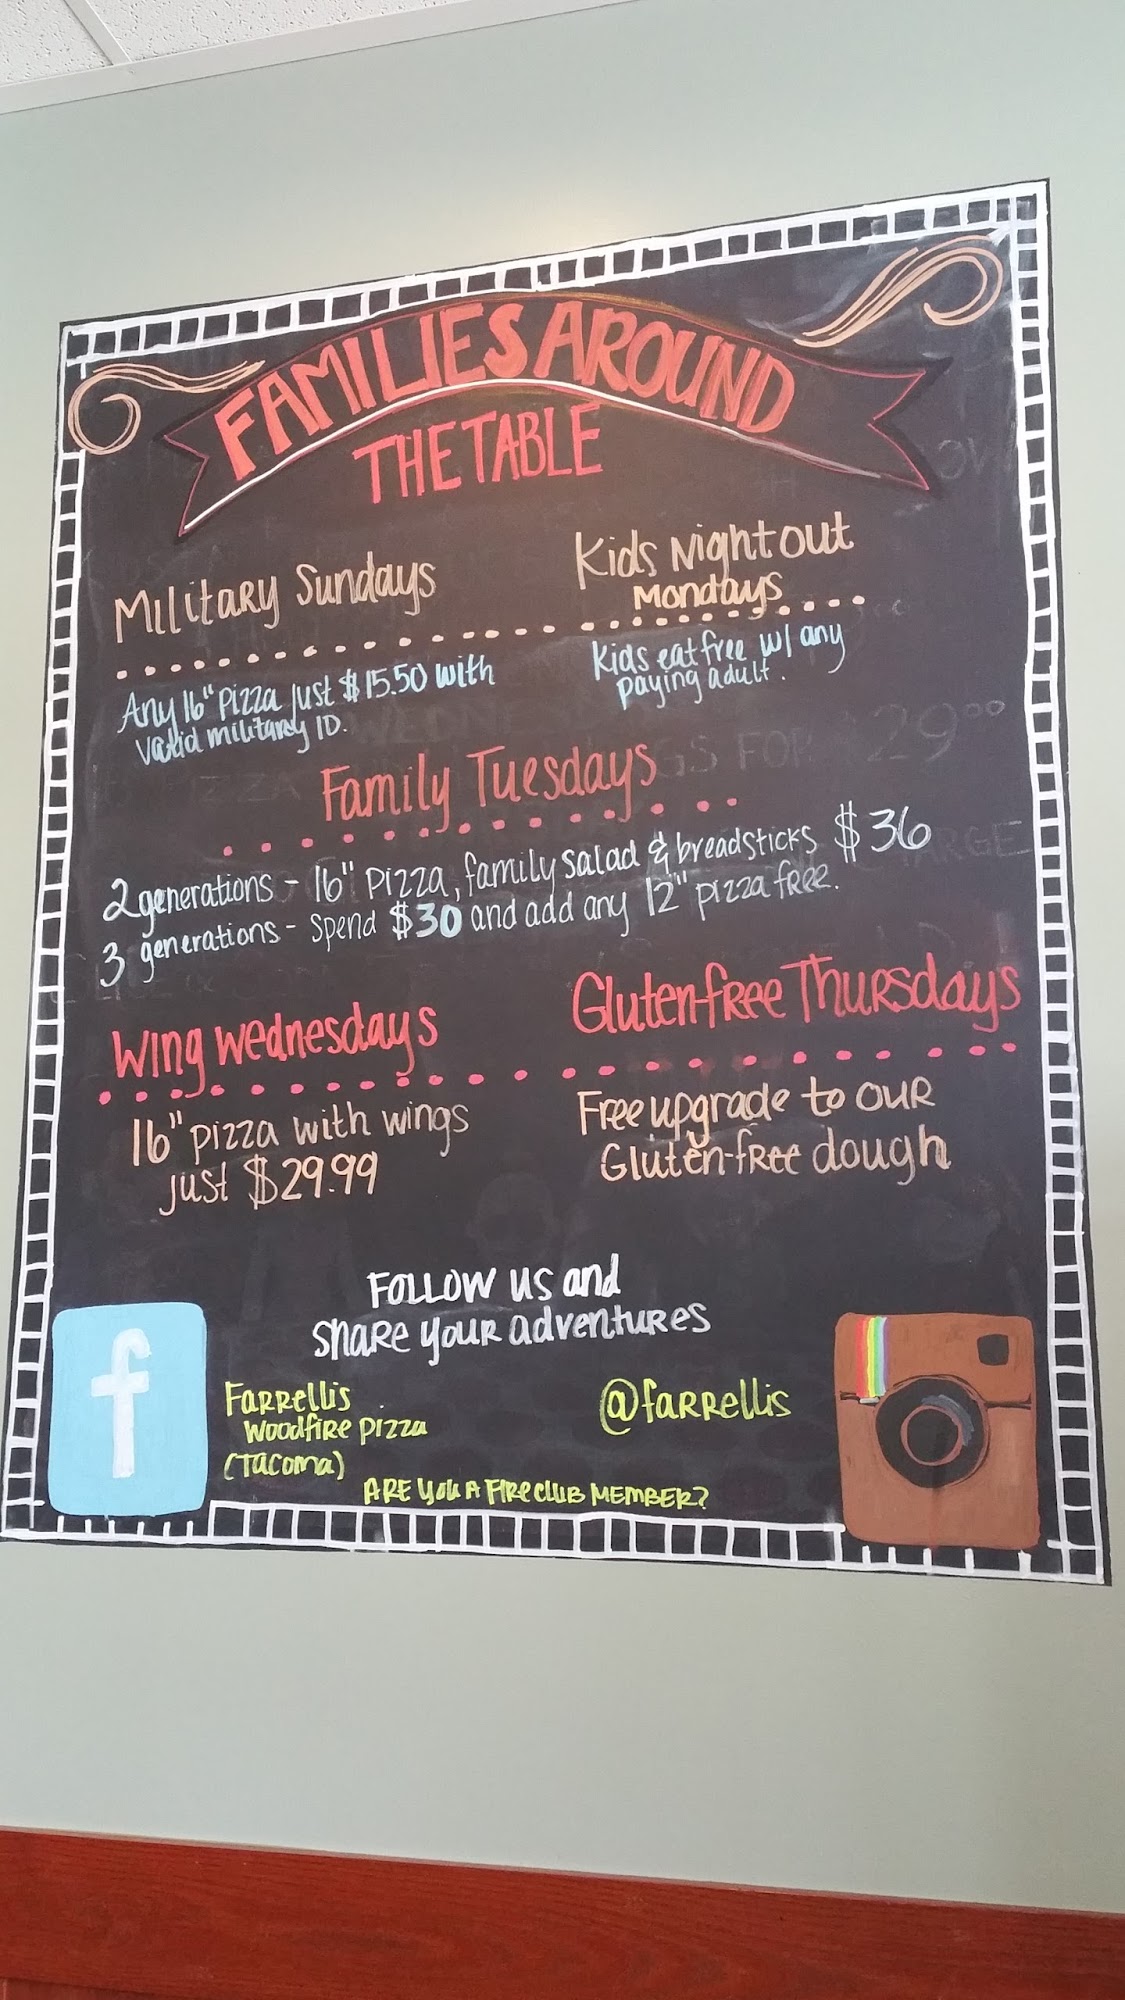 FAMILIES AROUND
THE TABLE
Military Sundays
Any 16" pizza just $15.50 with
valid military ID.
Kids Night out
Mondays
Kids eat free w/ any
paying adult.
Family Tuesdays
2 generations - 16" pizza, family salad & breadsticks $36
3 generations - spend $30 and add any 12" pizza free.
Wing Wednesdays
16" pizza with wings
just $29.99
Gluten-free Thursdays
Free upgrade to our
Gluten-free dough
Follow us and
share your adventures
f
Farrellis
Woodfire pizza
(Tacoma)
@farrellis
Are you a Fire club member?